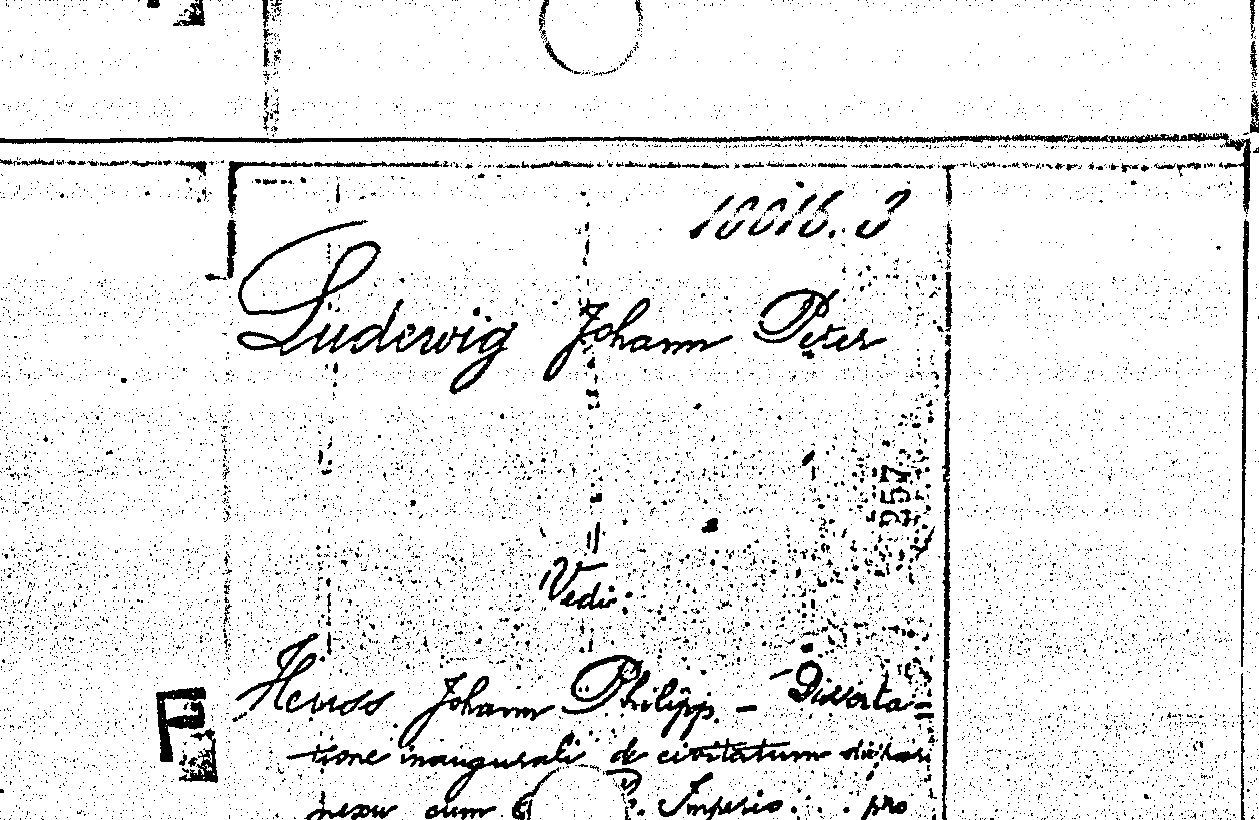 10016.3
Ludewig Johann Peter
957
Vedi:
Heuss Johann Philipp - Disserta=
tione inaugurali de civitatum dispari
nexu cum Imperio... pro